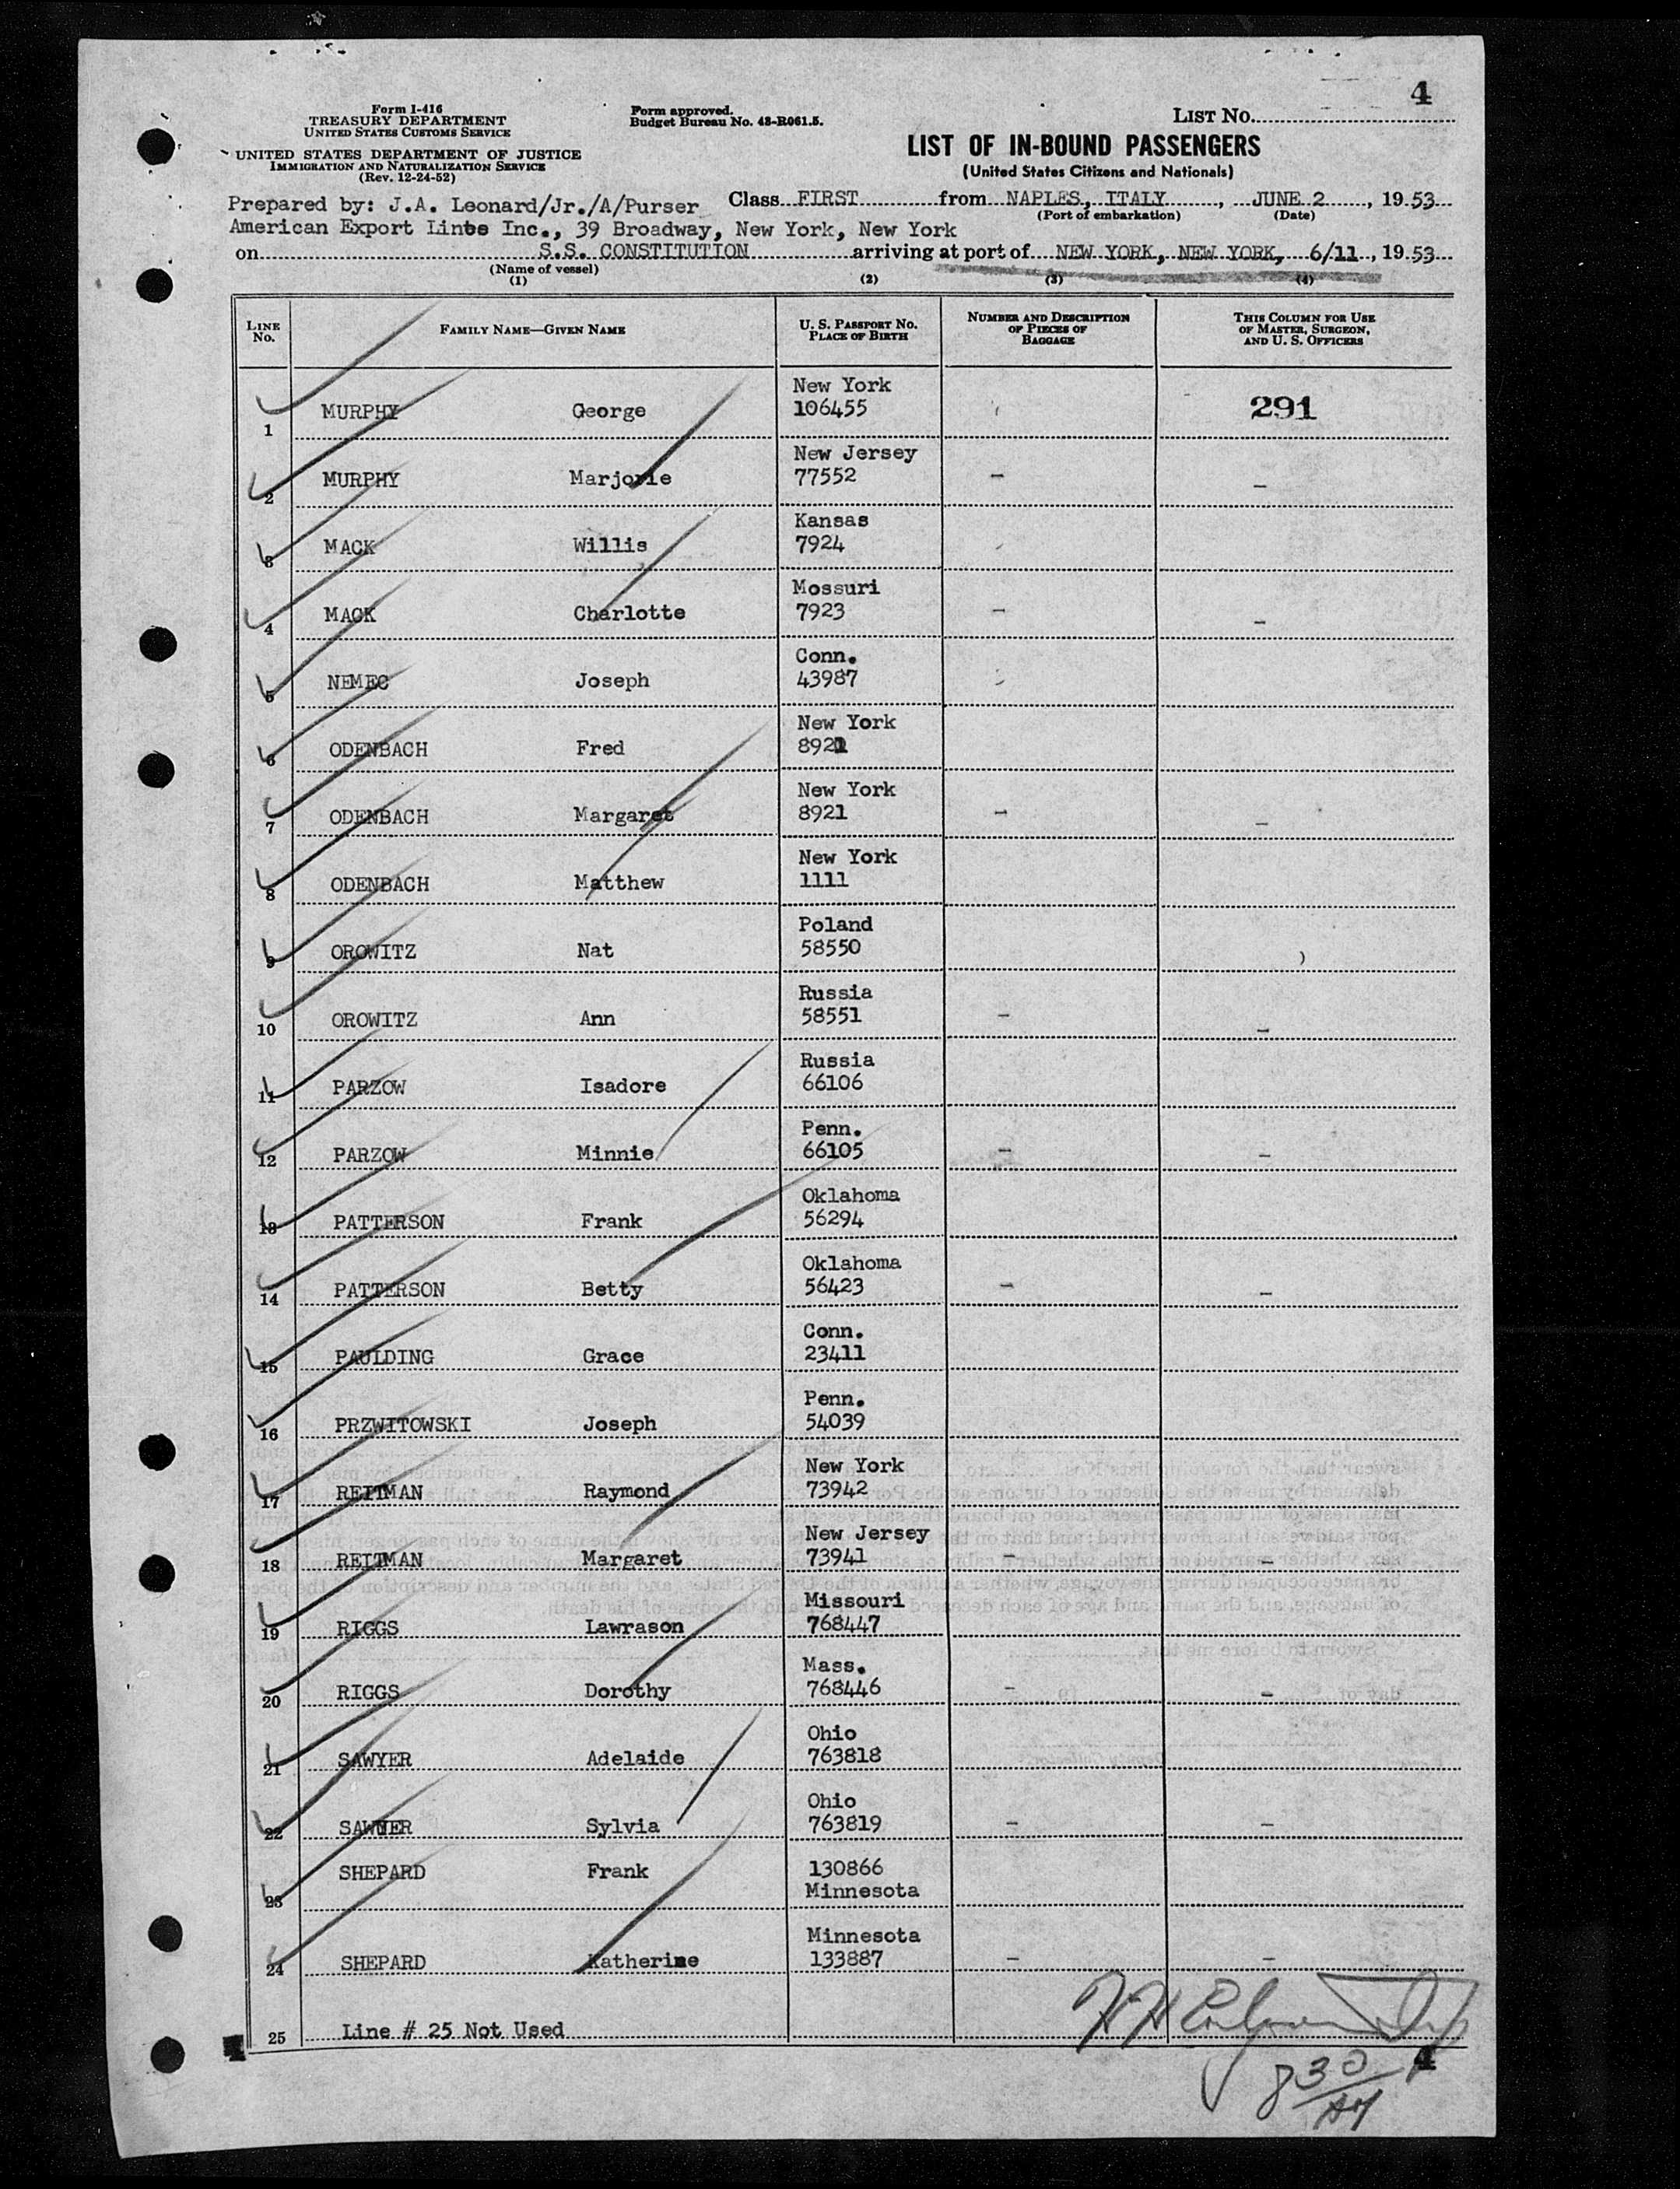 4
Form I-416
TREASURY DEPARTMENT
UNITED STATES CUSTOMS SERVICE
UNITED STATES DEPARTMENT OF JUSTICE
IMMIGRATION AND NATURALIZATION SERVICE
(Rev. 12-24-52)
Form approved.
Budget Bureau No. 43-R061.5.
LIST No.
LIST OF IN-BOUND PASSENGERS
(United States Citizens and Nationals)
Prepared by: J.A. Leonard/Jr./A/Purser Class FIRST from NAPLES, ITALY, JUNE 2, 1953
(Port of embarkation) (Date)
American Export Lines Inc., 39 Broadway, New York, New York
on S.S. CONSTITUTION arriving at port of NEW YORK, NEW YORK, 6/11, 1953
(Name of vessel)
(1) (2) (3) (4)
LINE No. FAMILY NAME—GIVEN NAME U. S. PASSPORT No. PLACE OF BIRTH NUMBER AND DESCRIPTION OF PIECES OF BAGGAGE THIS COLUMN FOR USE OF MASTER, SURGEON, AND U. S. OFFICERS
New York
1 MURPHY George 106455 291
New Jersey
2 MURPHY Marjorie 77552 - -
Kansas
3 MACK Willis 7924
Mossuri
4 MACK Charlotte 7923 - -
Conn.
5 NEMEC Joseph 43987
New York
6 ODENBACH Fred 8921
New York
7 ODENBACH Margaret 8921 - -
New York
8 ODENBACH Matthew 1111
Poland
9 OROWITZ Nat 58550
Russia
10 OROWITZ Ann 58551 - -
Russia
11 PARZOW Isadore 66106
Penn.
12 PARZOW Minnie 66105 - -
Oklahoma
13 PATTERSON Frank 56294
Oklahoma
14 PATTERSON Betty 56423 - -
Conn.
15 PAULDING Grace 23411
Penn.
16 PRZWITOWSKI Joseph 54039
New York
17 REITMAN Raymond 73942
New Jersey
18 REITMAN Margaret 73941 - -
Missouri
19 RIGGS Lawrason 768447
Mass.
20 RIGGS Dorothy 768446 - -
Ohio
21 SAWYER Adelaide 763818
Ohio
22 SAWYER Sylvia 763819 - -
SHEPARD Frank 130866
23 Minnesota
Minnesota
24 SHEPARD Katherine 133887 - -
25 Line # 25 Not Used
4
830
AM